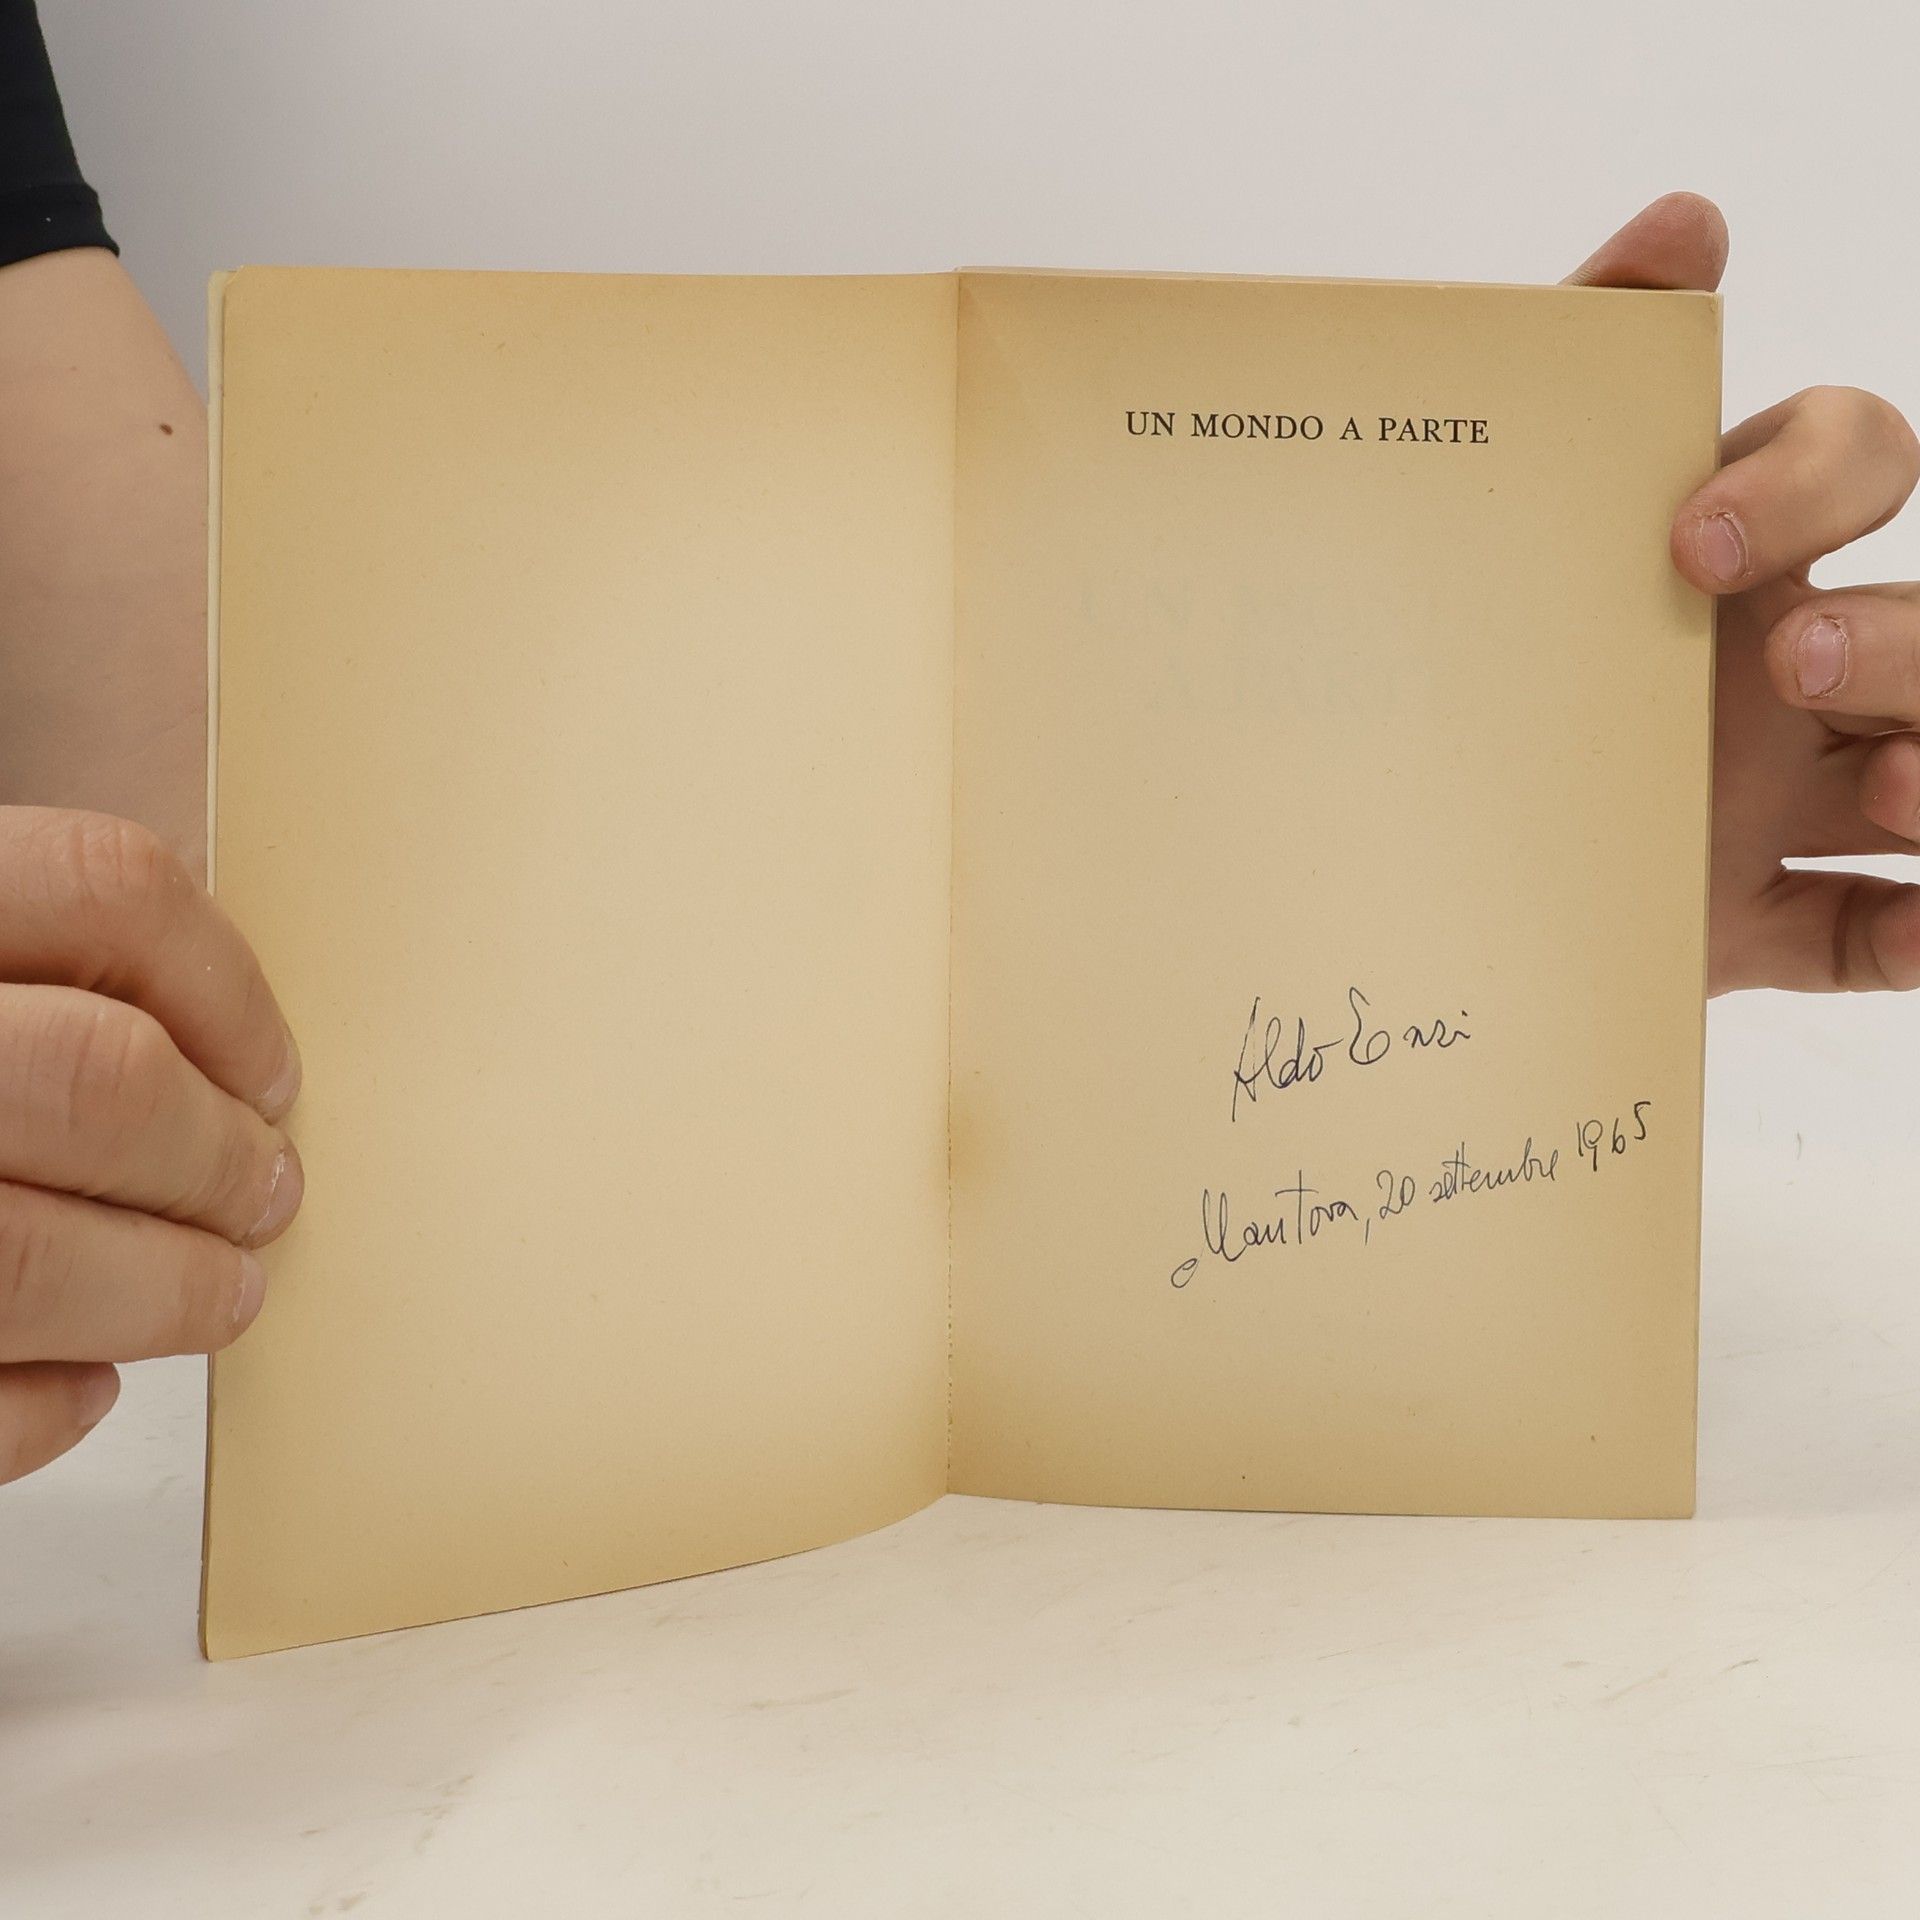 UN MONDO A PARTE
Aldo Enzi
Mantova, 20 settembre 1965